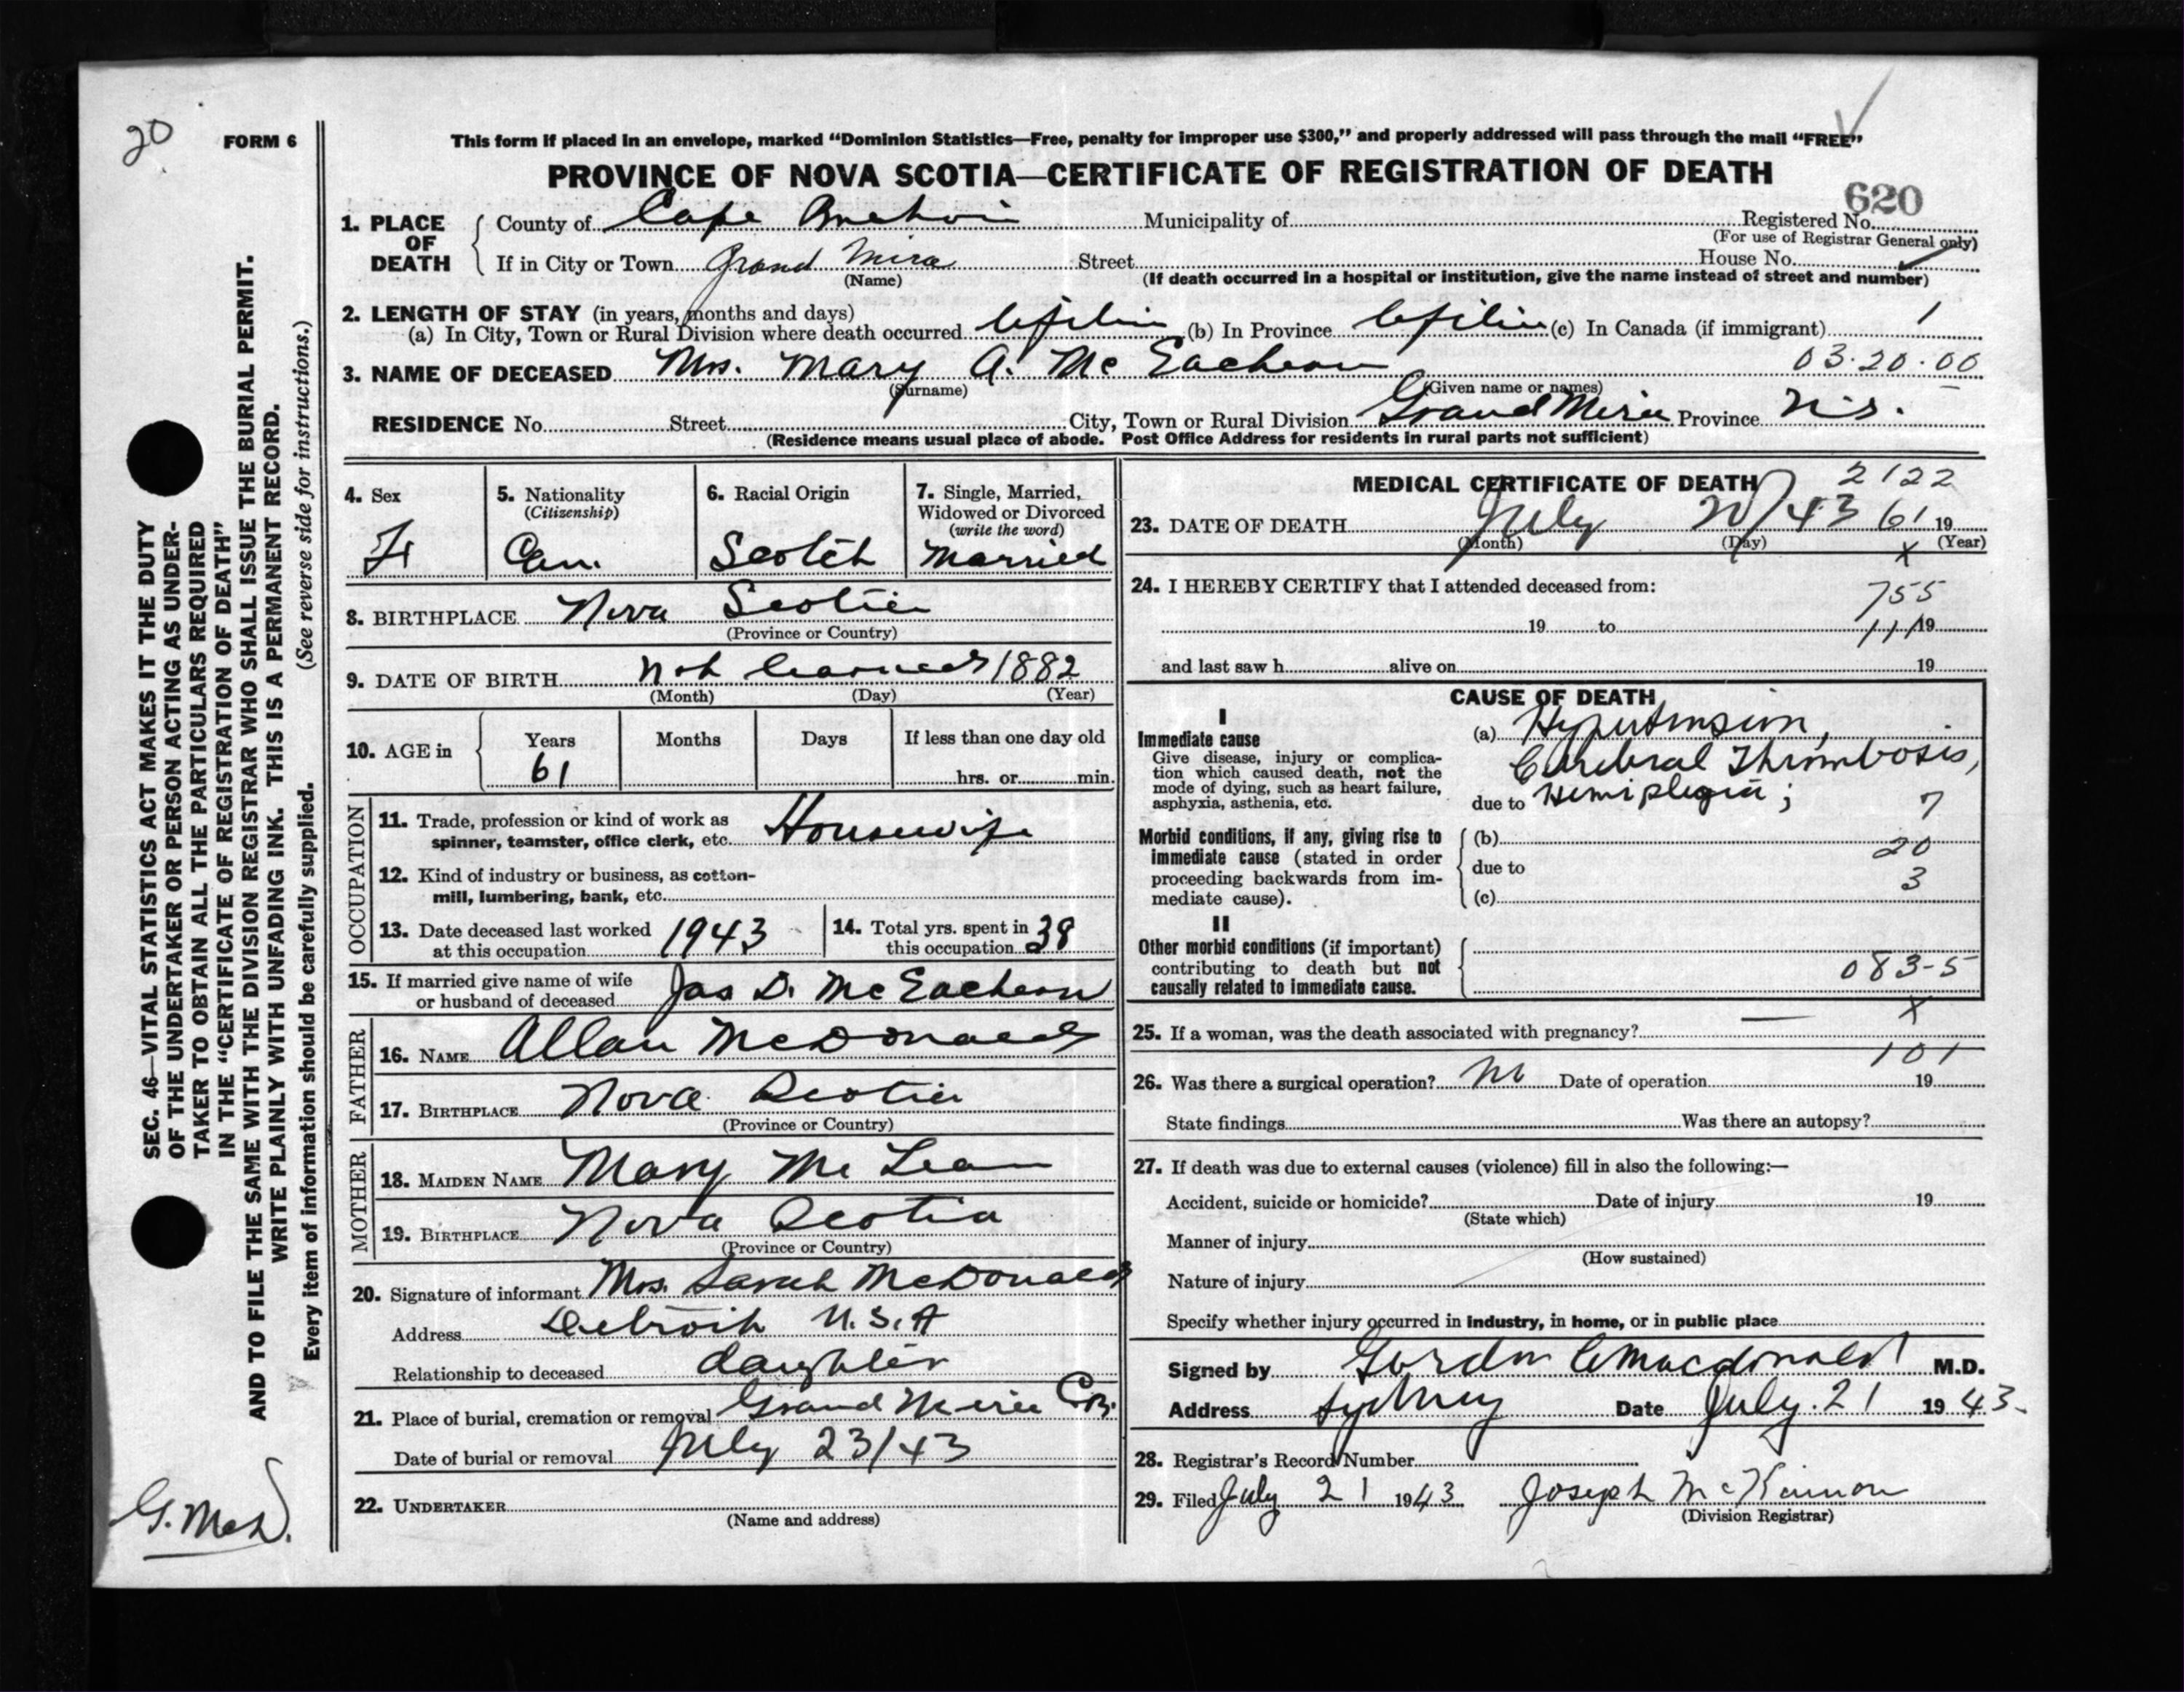 20
FORM 6
This form if placed in an envelope, marked “Dominion Statistics—Free, penalty for improper use $300,” and properly addressed will pass through the mail “FREE”
PROVINCE OF NOVA SCOTIA—CERTIFICATE OF REGISTRATION OF DEATH
620
1. PLACE OF DEATH
County of Cape Breton Municipality of Registered No.
(For use of Registrar General only)
If in City or Town Grand Mira Street House No.
(Name) (If death occurred in a hospital or institution, give the name instead of street and number)
2. LENGTH OF STAY (in years, months and days)
(a) In City, Town or Rural Division where death occurred lifetime (b) In Province lifetime (c) In Canada (if immigrant) 1
3. NAME OF DECEASED Mrs. Mary A. Mc Eachern 03.20.00
(Surname) (Given name or names)
RESIDENCE No. Street City, Town or Rural Division Grand Mira Province N.S.
(Residence means usual place of abode. Post Office Address for residents in rural parts not sufficient)
4. Sex
F
5. Nationality
(Citizenship)
Can.
6. Racial Origin
Scotch
7. Single, Married,
Widowed or Divorced
(write the word)
Married
8. BIRTHPLACE Nova Scotia
(Province or Country)
9. DATE OF BIRTH Not learned 1882
(Month) (Day) (Year)
10. AGE in
Years Months Days If less than one day old
61 hrs. or min.
OCCUPATION
11. Trade, profession or kind of work as
spinner, teamster, office clerk, etc. Housewife
12. Kind of industry or business, as cotton-
mill, lumbering, bank, etc.
13. Date deceased last worked
at this occupation 1943
14. Total yrs. spent in
this occupation 38
15. If married give name of wife
or husband of deceased Jas D. McEachern
FATHER
16. NAME Allan McDonald
17. BIRTHPLACE Nova Scotia
(Province or Country)
MOTHER
18. MAIDEN NAME Mary McLean
19. BIRTHPLACE Nova Scotia
(Province or Country)
20. Signature of informant Mrs. Sarah McDonald
Address Detroit U.S.A
Relationship to deceased daughter
21. Place of burial, cremation or removal Grand Mira C.B.
Date of burial or removal July 23/43
22. UNDERTAKER
(Name and address)
MEDICAL CERTIFICATE OF DEATH 2122
23. DATE OF DEATH July 20/43 61 19
(Month) (Day) x (Year)
24. I HEREBY CERTIFY that I attended deceased from:
755
19 to 111 19
and last saw h alive on 19
CAUSE OF DEATH
I
Immediate cause
Give disease, injury or complica-
tion which caused death, not the
mode of dying, such as heart failure,
asphyxia, asthenia, etc.
(a) Hypertension,
Cerebral Thrombosis,
due to Hemiplegia; 7
Morbid conditions, if any, giving rise to
immediate cause (stated in order
proceeding backwards from im-
mediate cause).
(b) 20
due to
3
(c)
II
Other morbid conditions (if important)
contributing to death but not
causally related to immediate cause.
083-5
x
25. If a woman, was the death associated with pregnancy? —
101
26. Was there a surgical operation? No Date of operation 19
State findings Was there an autopsy?
27. If death was due to external causes (violence) fill in also the following:—
Accident, suicide or homicide? Date of injury 19
(State which)
Manner of injury
(How sustained)
Nature of injury
Specify whether injury occurred in industry, in home, or in public place
Signed by Gordon C Macdonald M.D.
Address Sydney Date July. 21 1943.
28. Registrar's Record Number
29. Filed July 21 1943 Joseph McKinnon
(Division Registrar)
SEC. 46—VITAL STATISTICS ACT MAKES IT THE DUTY
OF THE UNDERTAKER OR PERSON ACTING AS UNDER-
TAKER TO OBTAIN ALL THE PARTICULARS REQUIRED
IN THE “CERTIFICATE OF REGISTRATION OF DEATH”
AND TO FILE THE SAME WITH THE DIVISION REGISTRAR WHO SHALL ISSUE THE BURIAL PERMIT.
WRITE PLAINLY WITH UNFADING INK. THIS IS A PERMANENT RECORD.
Every item of information should be carefully supplied. (See reverse side for instructions.)
G. McD.